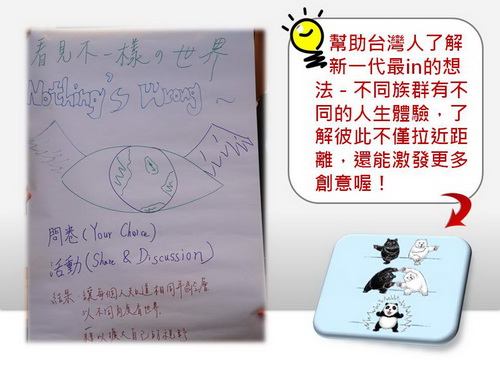 看見不一樣の世界
Nothing's Wrong~
問卷(Your Choice)
活動(Share & Discussion)
結果：讓每個人知道相同平
以不同角度看世界
藉以擴大自己的視野
幫助台灣人了解
新一代最in的想
法－不同族群有不
同的人生體驗，了
解彼此不僅拉近距
離，還能激發更多
創意喔！